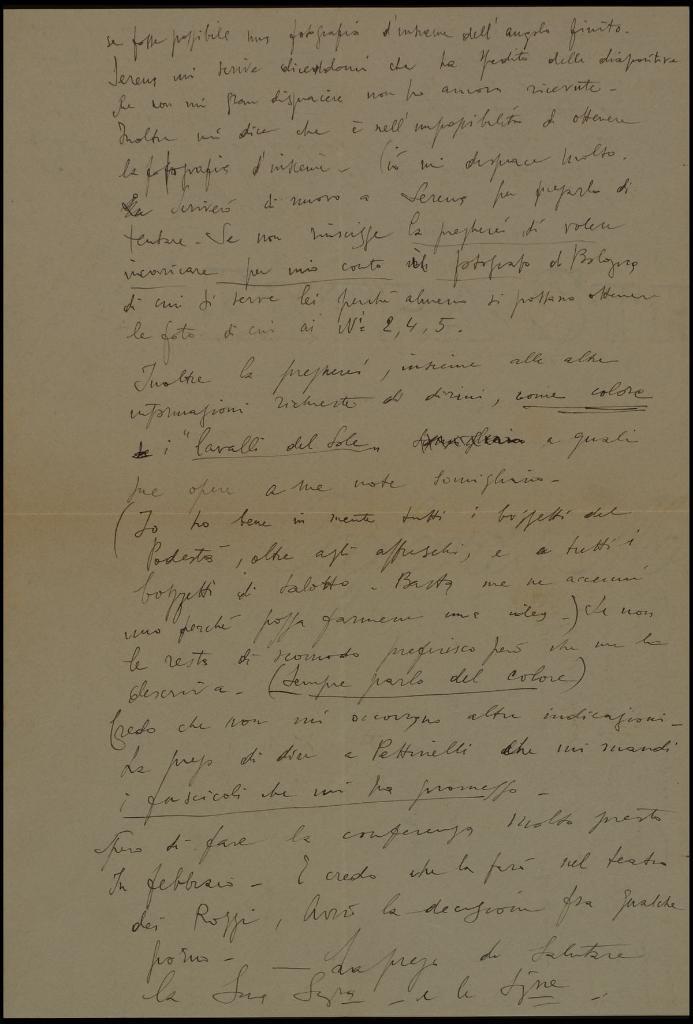 se fosse possibile una fotografia d'insieme dell'angolo finito.
Serena mi scrive dicendomi che ha spedito delle diapositive
che con mio gran dispiacere non ho ancora ricevute -
Inoltre mi dice che è nell'impossibilità di ottenere
la fotografia d'insieme - Ciò mi dispiace molto.
Scriverò di nuovo a Serena per pregarla di
tentare - Se non riuscisse la pregherei di volere
incaricare per mio conto il fotografo di Bologna
di cui si serve lei perchè almeno si possano ottenere
le foto di cui ai Ni 2, 4, 5.
Inoltre la pregherei, insieme alle altre
informazioni richieste di dirmi, come colore
i "Cavalli del Sole" a quali
sue opere a me note somigliano -
(Io ho bene in mente tutti i bozzetti del
Podestà, oltre agli affreschi, e a tutti i
bozzetti di salotto - Basta me ne accenni
uno perchè possa farmene una idea -) Se non
le resta di scomodo preferisco però che me la
descriva - (Sempre parlo del colore)
Credo che non mi occorrano altre indicazioni -
La prego di dire a Pettinelli che mi mandi
i fascicoli che mi ha promesso -
Spero di fare la conferenza molto presto
In febbraio - E credo che la farò nel teatro
dei Rozzi, Avrò la decisione fra qualche
giorno - La prego di salutare
la Sua Sigra - e le Signe -